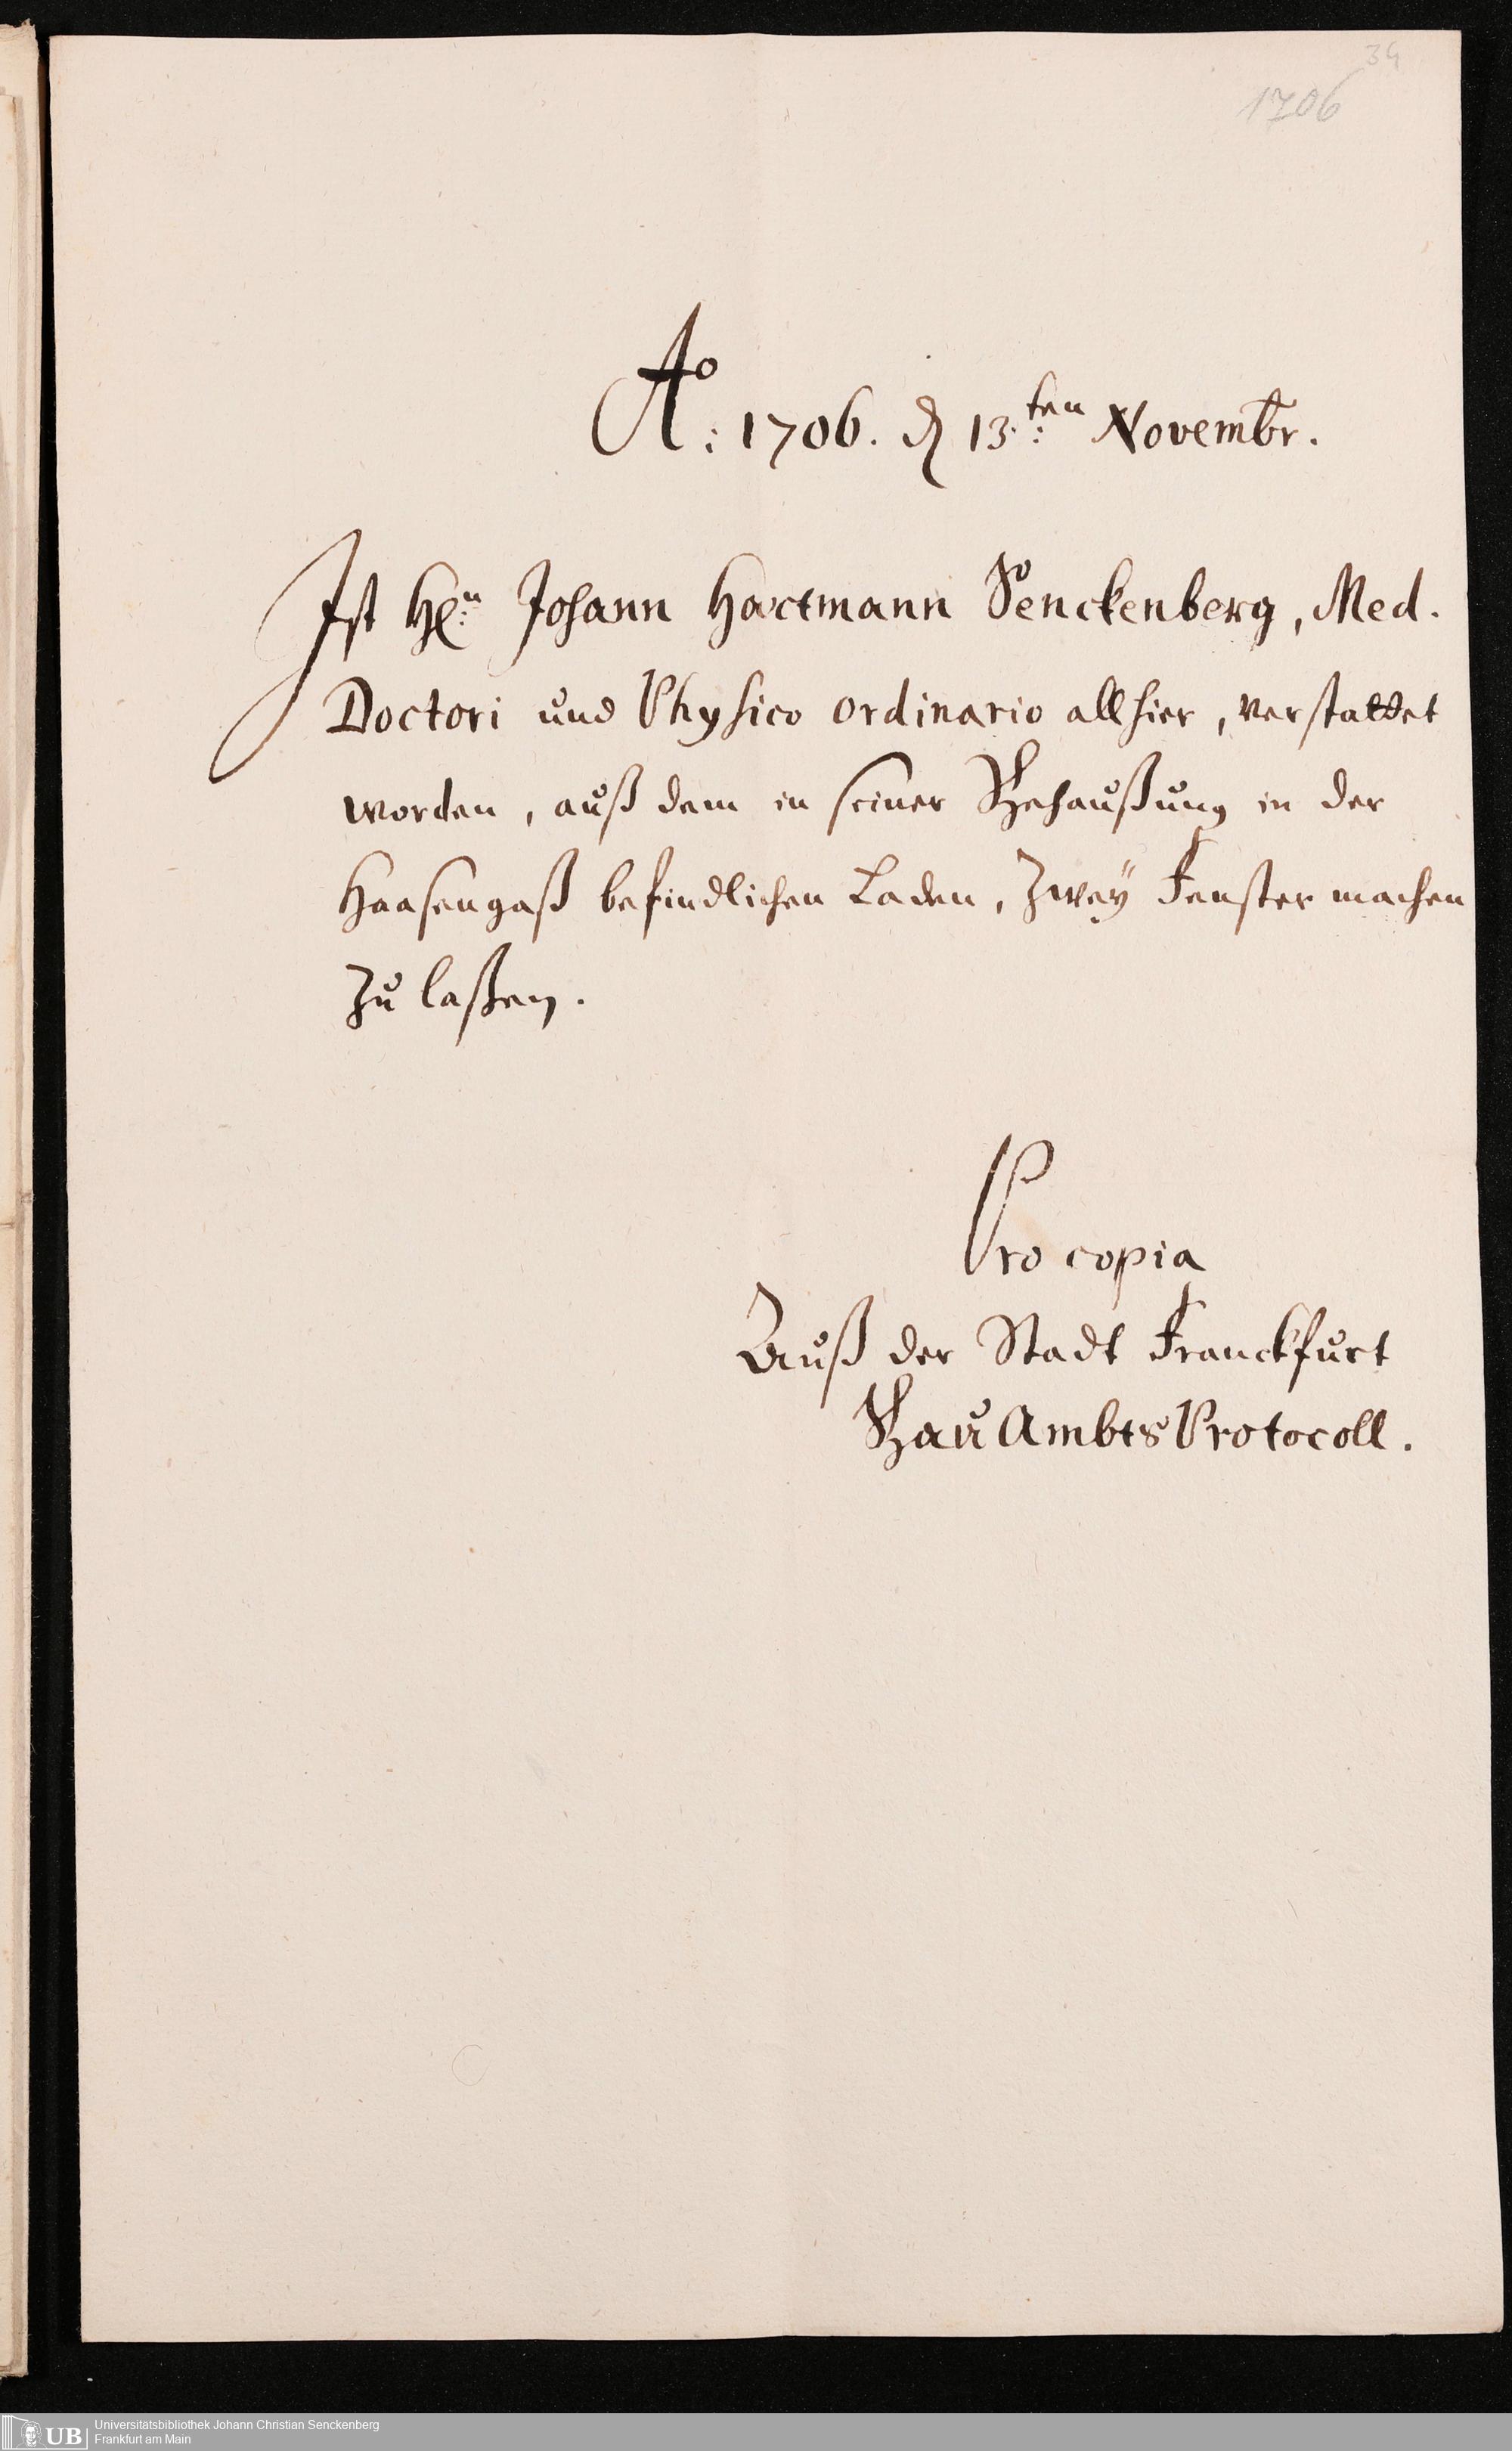 34
1706
Ao: 1706. d 13.ten Novembr.
Ist Hn: Johann Hartmann Senckenberg, Med.
Doctori und Physico ordinario allhier, verstattet
worden, auß dem in seiner Behaußung in der
Haasengaß befindlichen Laden, Zwey Fenster machen
Zu laßen.
Pro copia
Auß der Stadt Franckfurt
Bau Ambts Protocoll.
UB
Universitätsbibliothek Johann Christian Senckenberg
Frankfurt am Main